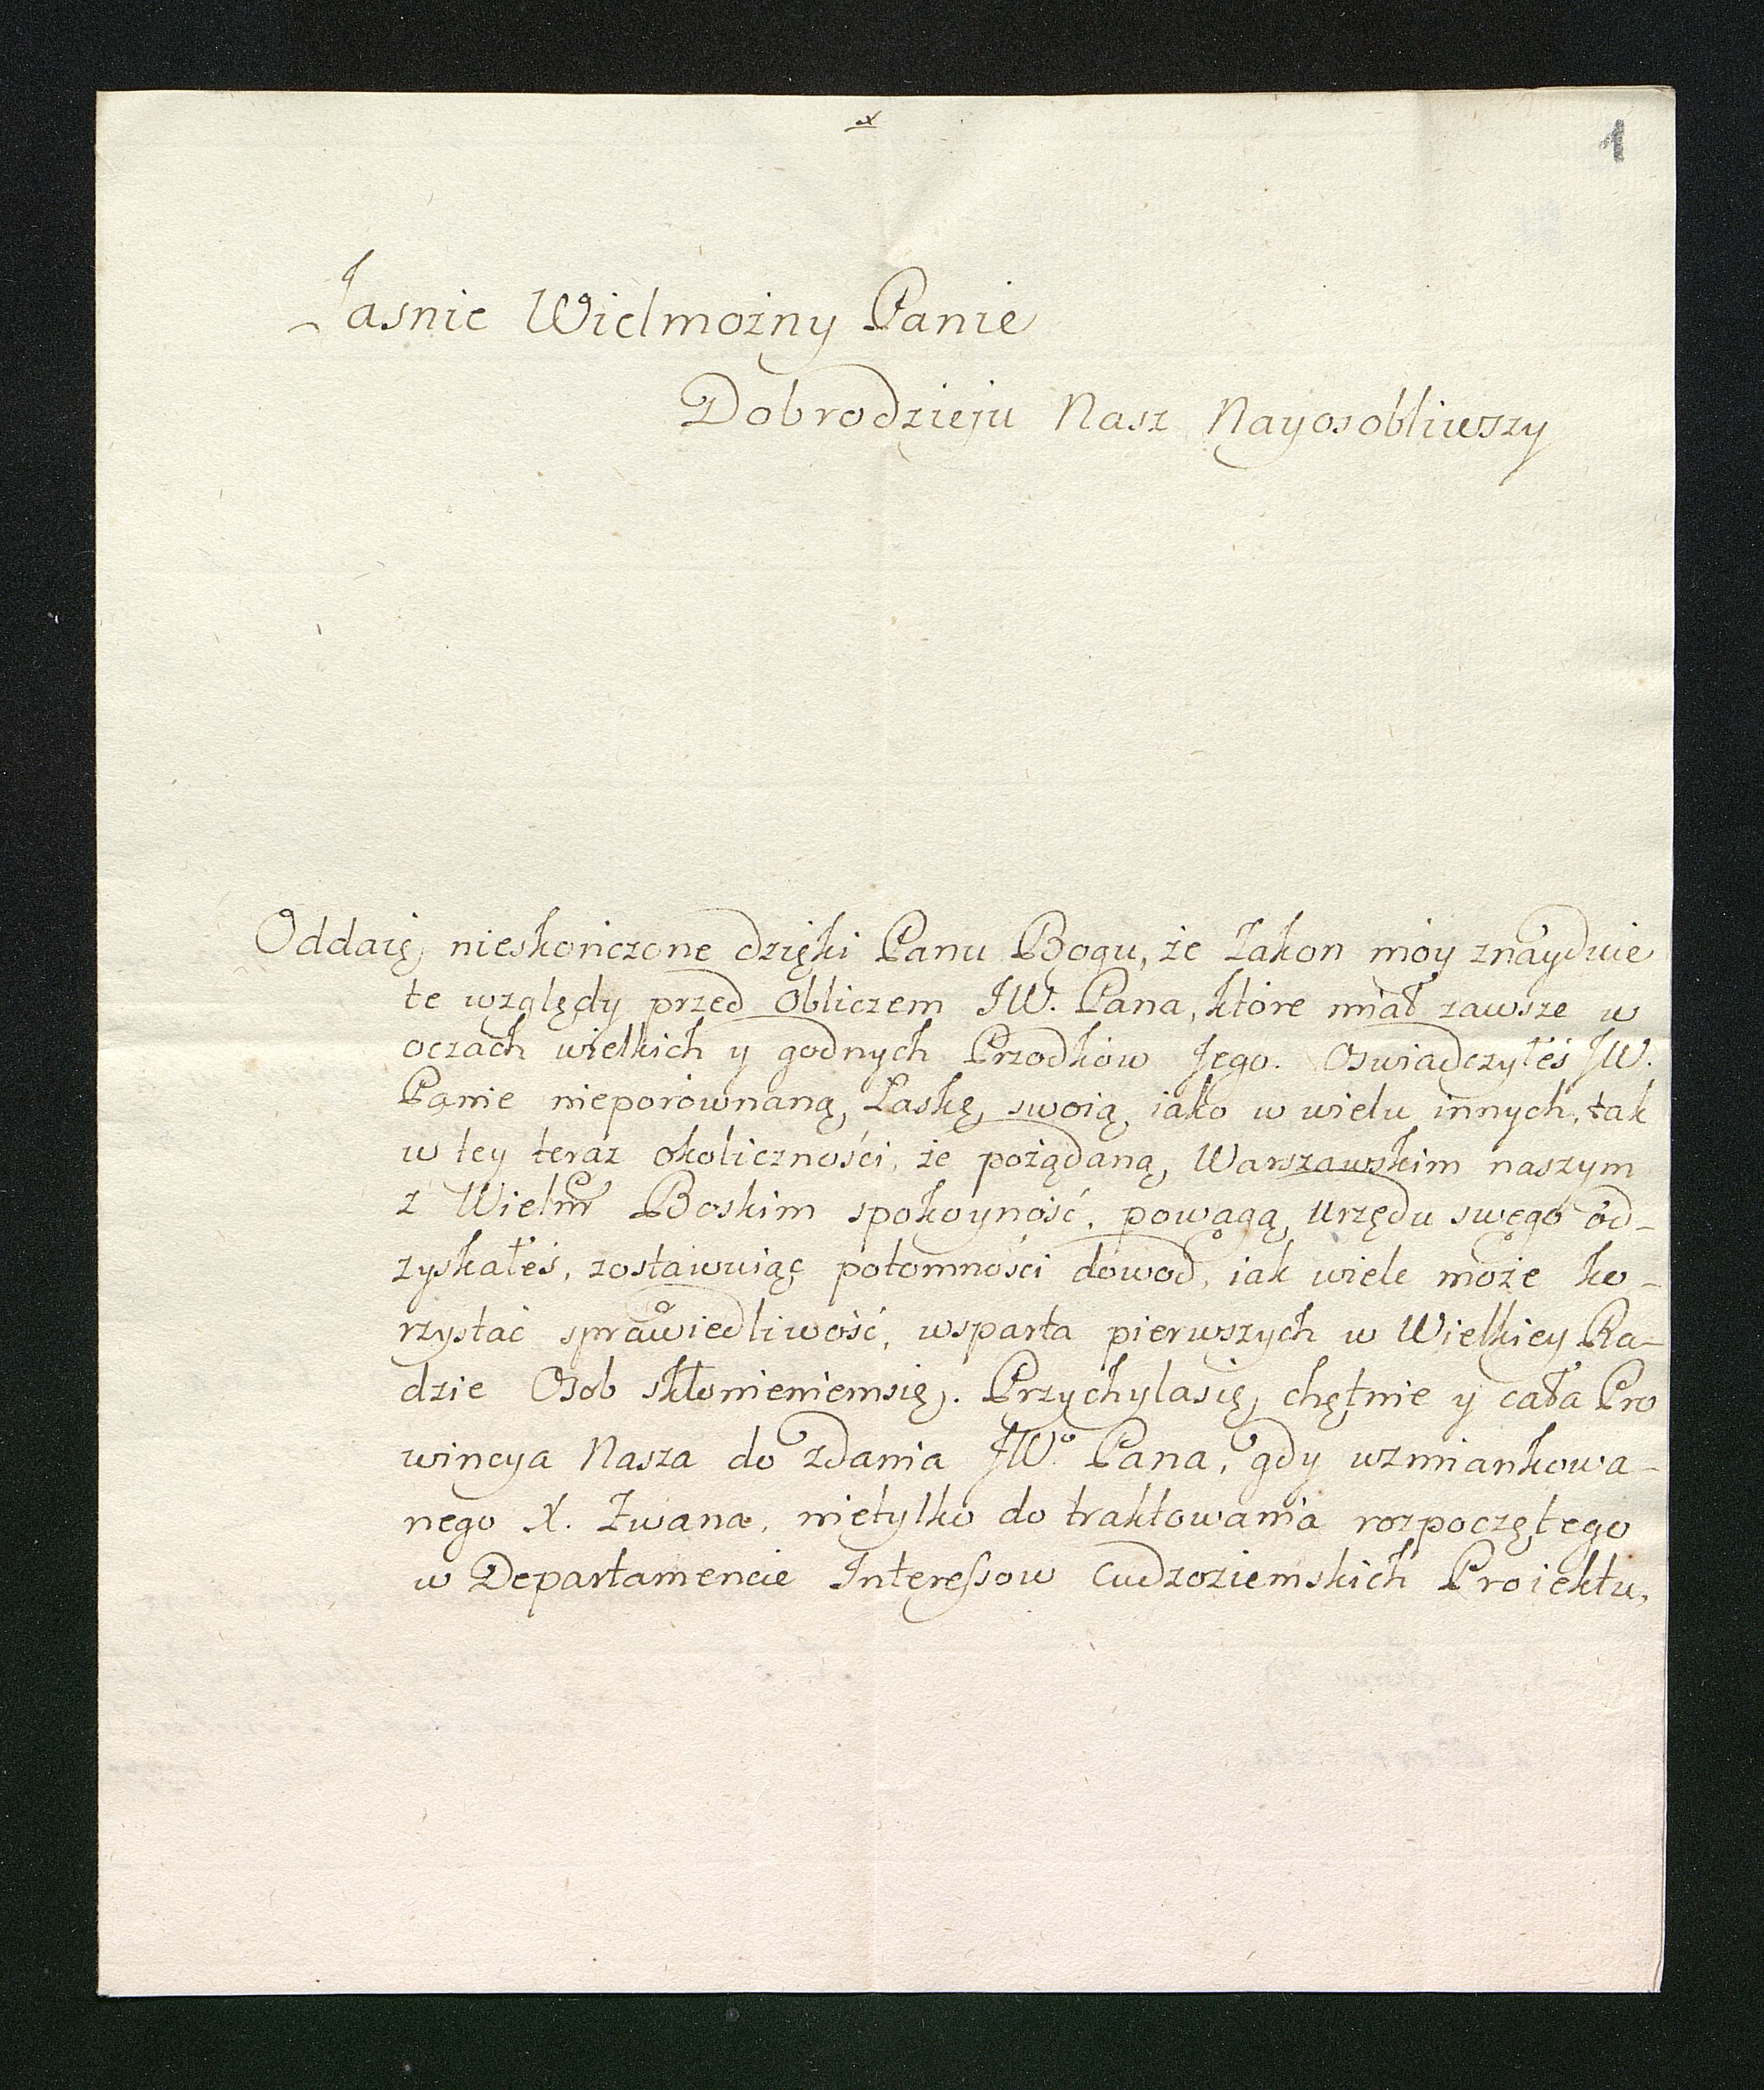 x
1
Jasnie Wielmożny Panie
Dobrodzieju Nasz Nayosobliwszy
Oddaię nieskończone dzięki Panu Bogu, że Zakon móy znayduie
te względy przed obliczem JW. Pana, które miał zawsze w
oczach wielkich y godnych Przodków Jego. Oswiadczyłeś JW.
Panie nieporównaną Łaskę swoią iako w wielu innych, tak
w tey teraz okoliczności, że pożądaną Warszawskim naszym
z Wielm Boskim spokoyność, powagą urzędu swego od-
zyskałeś, zostawuiąc potomności dowod, iak wiele może ko-
rzystać sprawiedliwość, wsparta pierwszych w Wielkiey Ra-
dzie Osob skłonieniemsię. Przychylasię chętnie y cała Pro
wincya Nasza do zdania JWo Pana, gdy wzmiankowa-
nego X. Iwana, nietylko do traktowania rozpoczętego
w Departamencie Interessow Cudzoziemskich Proiektu,